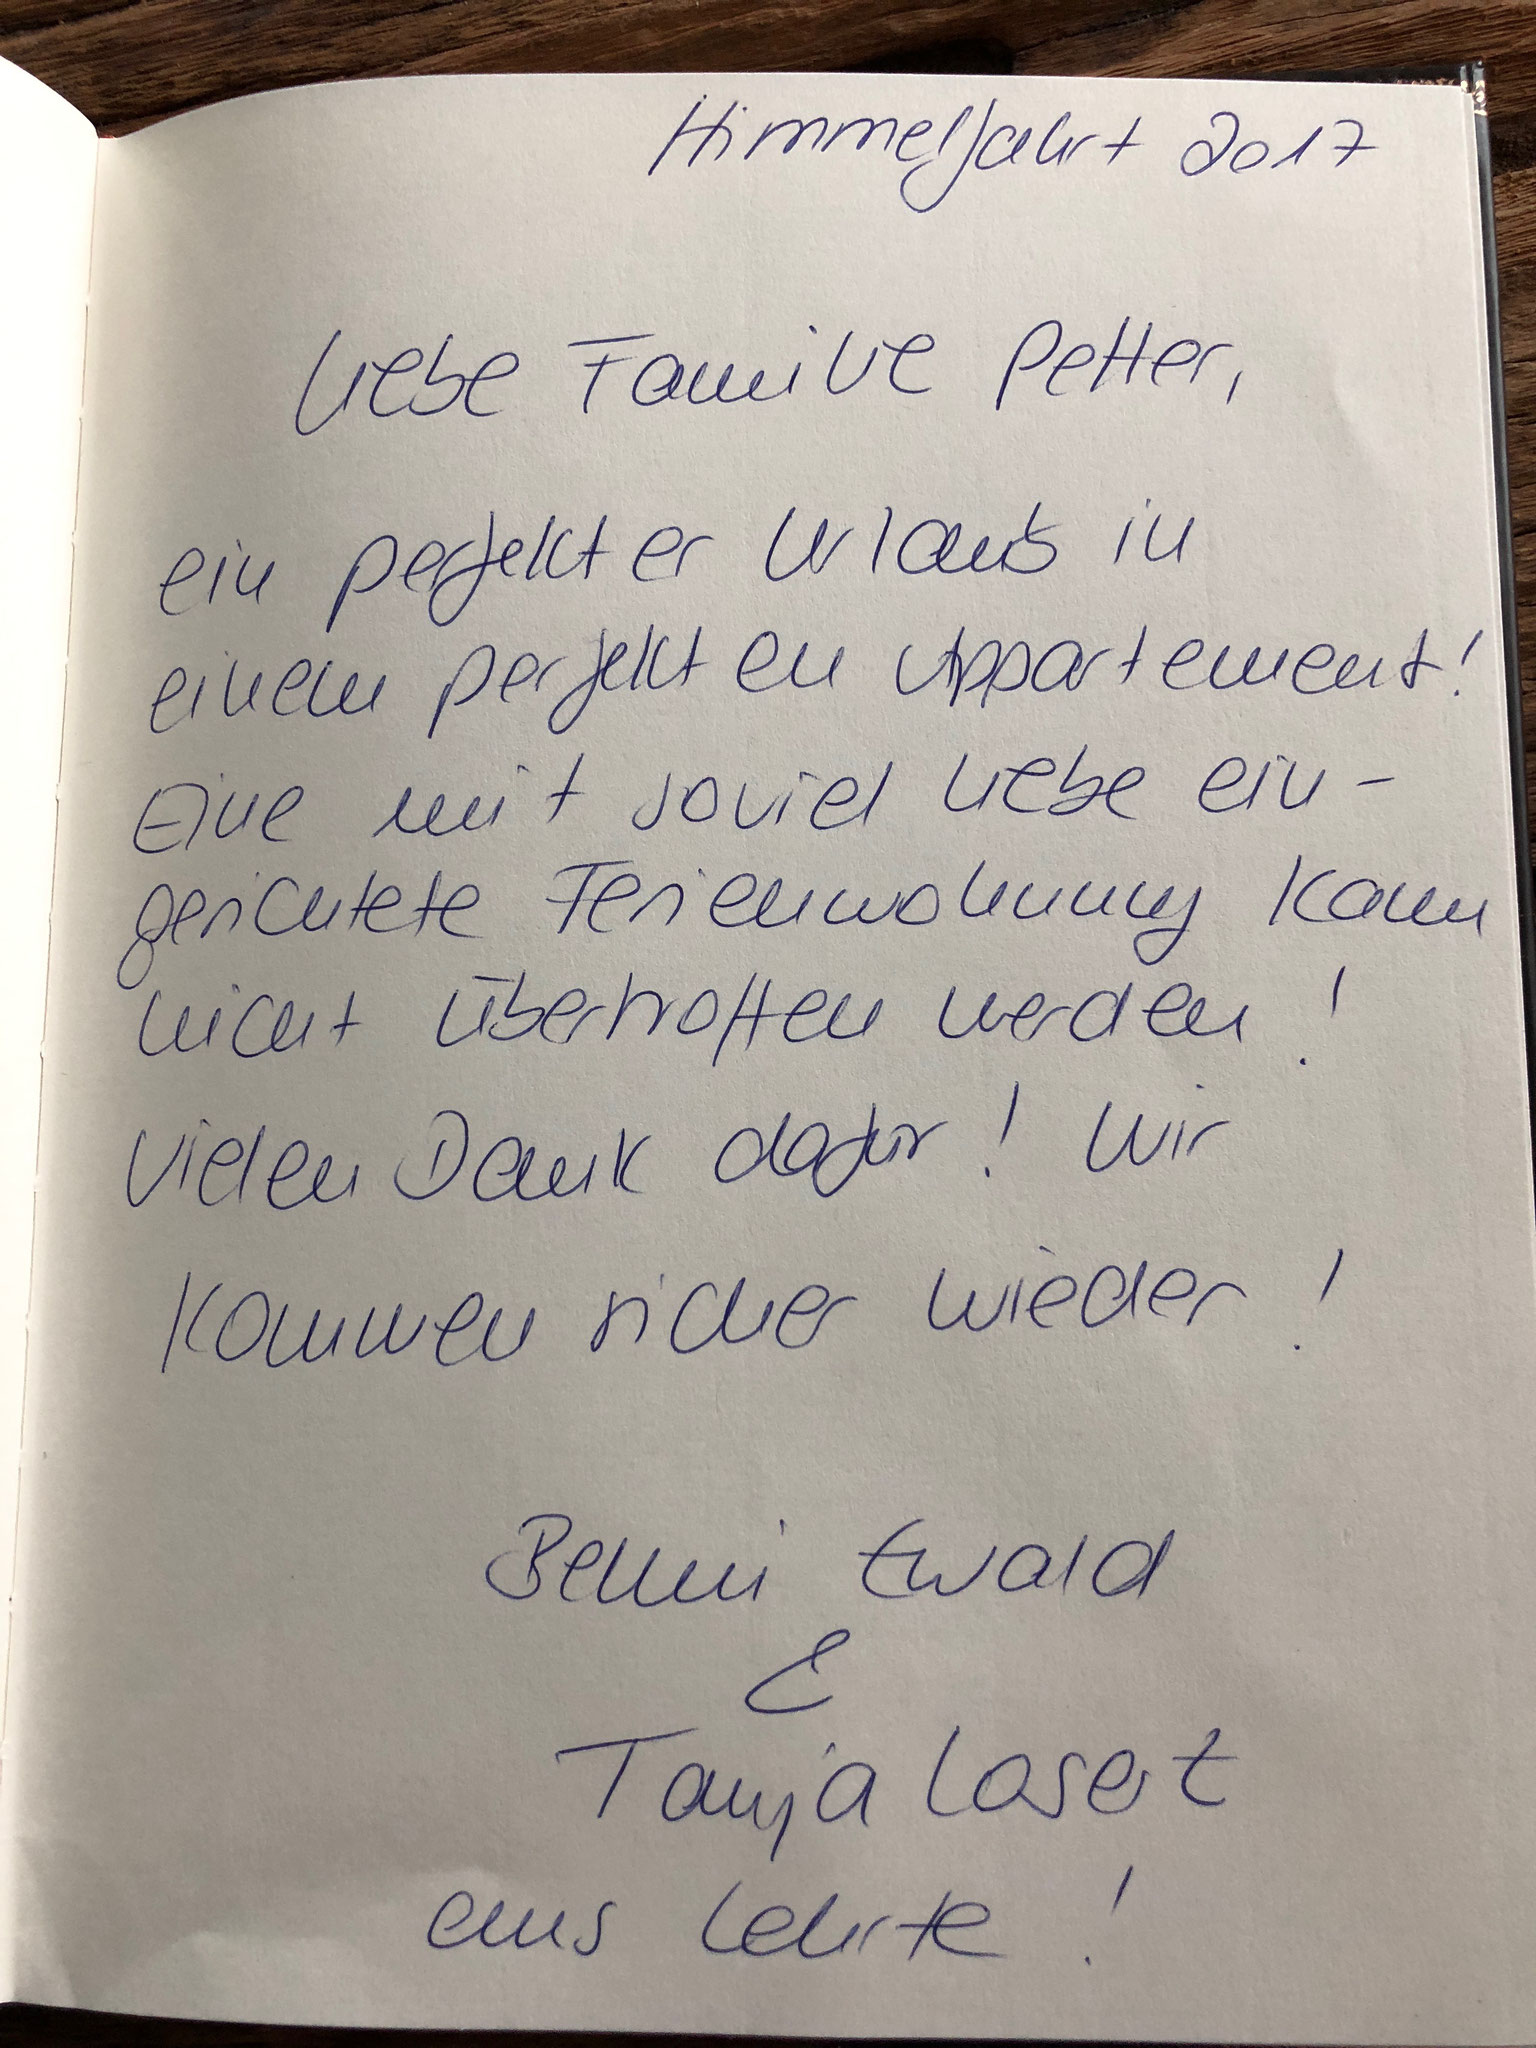 Himmelfahrt 2017
Liebe Familie Petter,
ein perfekter Urlaub in
einem perfekten Appartement!
Eine mit soviel Liebe ein-
gerichtete Ferienwohnung kann
nicht übertroffen werden!
Vielen Dank dafür! Wir
kommen sicher wieder!
Benni Ewald
&
Tanja Losert
aus Lehrte!